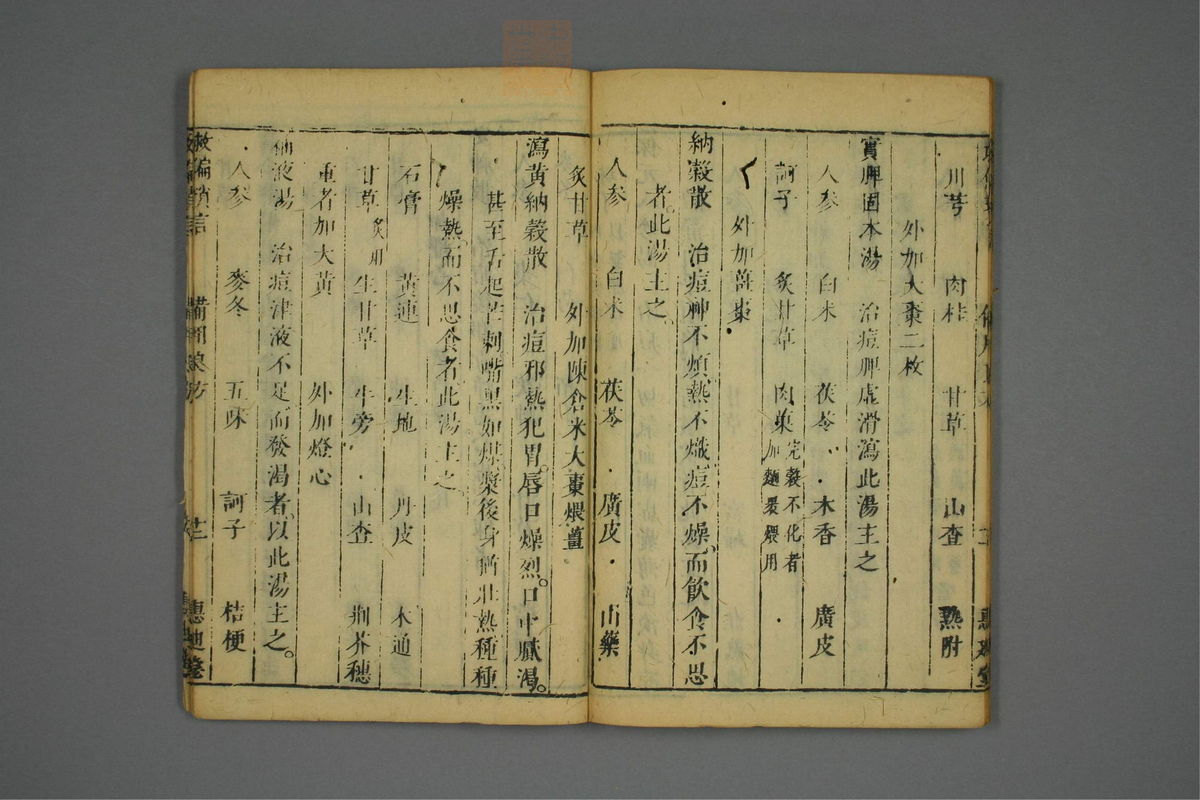 川芎 肉桂 甘草 山查 熟附
外加大棗二枚
實脾固本湯 治痘脾虛滑瀉此湯主之
人參 白朮 茯苓 木香 廣皮
訶子 炙甘草 肉菓 完穀不化者加麵裹煨用
外加薑棗
納穀散 治痘神不煩熱不熾痘不燥而飲食不思
者此湯主之
人參 白朮 茯苓 廣皮 山藥
炙甘草 外加陳倉米大棗煨薑
瀉黃納穀散 治痘邪熱犯胃。唇口燥烈。口中膩渴。
甚至舌起芒刺嘴黑如煤漿後身猶壯熱種種
燥熱而不思食者此湯主之。
石膏 黃連 生地 丹皮 木通
甘草 炙 生甘草 牛旁 山查 荆芥穗
重者加大黃 外加燈心
液湯 治痘津液不足而發渴者以此湯主之。
人參 麥冬 五味 訶子 桔梗
救偏瑣言 備用良方 惠迪堂